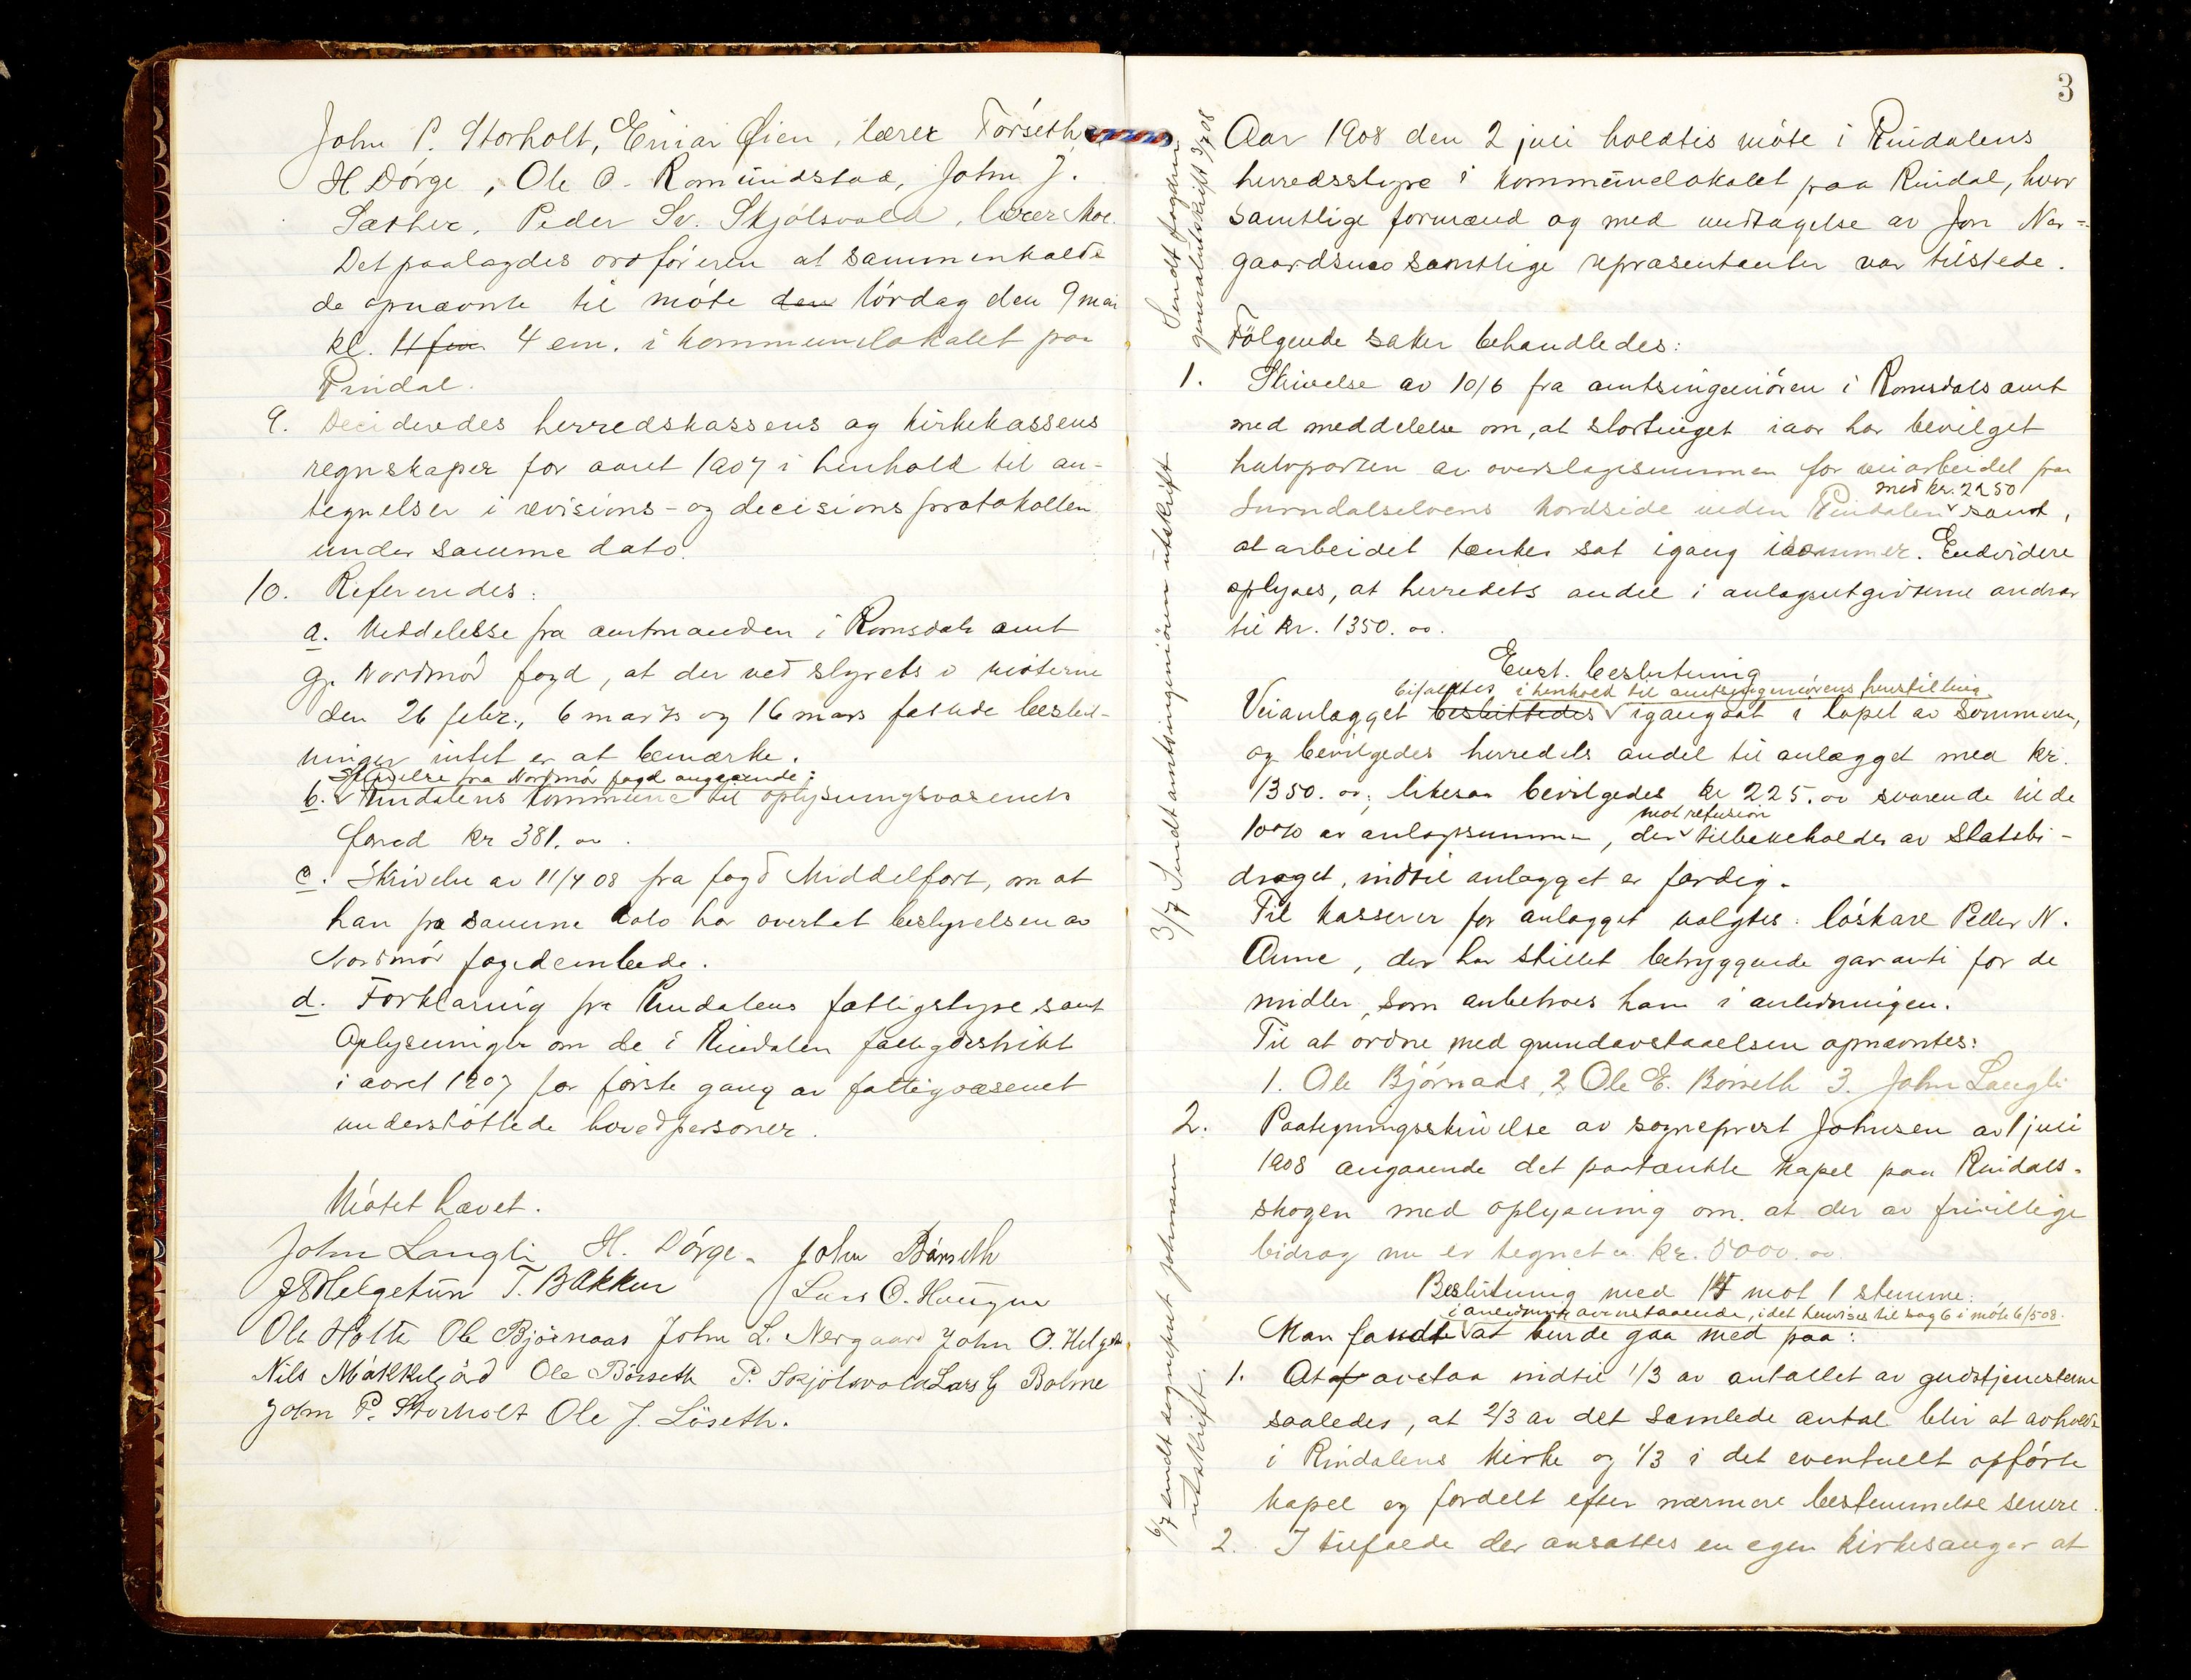 John P. Storholt, Einar Øien, lærer Torseth,
H Dørge, Ole O. Romundstad, John J.
Sæther, Peder Sv. Skjølsvold, lærer Moe.
Det paalagdes ordføreren at sammenkalde
de opnævnte til møte den lørdag den 9 mai
kl. 11 fm 4 em. i kommunelokalet paa
Rindal.
9. Decideredes herredskassens og kirkekassens
regnskaper for aaret 1907 i henhold til an-
tegnelser i revisions- og decisionsprotokollen
under samme dato.
10. Refereredes:
a. Meddelelse fra amtmanden i Romsdals amt
gj. Nordmør fogd, at der ved styrets i møterne
den 26 febr., 6 marts og 16 mars fattede beslut-
ninger intet er at bemærke.
Skrivelse fra Nordmør fogd angaaende:
b. Rindalens kommune til oplysningsvæsenets
fond kr 381.00.
c. Skrivelse av 11/4 08 fra fogd Middelfart, om at
han fra samme dato har overtat bestyrelsen av
Nordmør fogedembede.
d. Forklaring fra Rindalens fattigstyre samt
Oplysninger om de i Rindalen fattigdistrikt
i aaret 1907 for første gang av fattigvæsenet
understøttede hovedpersoner.
Møtet hævet.
John Langli H. Dørge. John Børseth
J S Helgetun T. Bakken Lars O. Haugen
Ole Holte Ole Bjørnaas John L. Nergaard John O. Helgetun
Nils Mækkelgård Ole Børseth P. Skjølsvold Lars G Bolme
John P. Storholt Ole J. Løseth.
3
Sendt fogden
generalutskrift 3/7 08
Aar 1908 den 2 juli holdtes møte i Rindalens
herredsstyre i kommunelokalet paa Rindal, hvor
samtlige formænd og med undtagelse av Jon Ner-
gaardsmo samtlige repræsentanter var tilstede.
Følgende saker behandledes:
3/7 Sendt amtsingeniøren utskrift
1. Skrivelse av 10/6 fra amtsingeniøren i Romsdals amt
med meddelelse om, at stortinget iaar har bevilget
halvparten av overslagssummen for veiarbeidet paa
med kr. 2250
Surndalselvens nordside inden Rindalen samt,
at arbeidet tænkes sat igang isommer. Endvidere
oplyses, at herredets andel i anlægsutgifterne andrar
til kr. 1350.00.
Enst. beslutning
bifaldtes i henhold til amtsingeniørens henstilling
Veianlægget besluttedes igangsat i løpet av sommeren,
og bevilgedes herredets andel til anlægget med kr.
1350.00; likesaa bevilgedes kr 225.00 svarende til de
mot refusion
10% av anlægssummen, der tilbakeholdes av Statsbi-
draget, indtil anlægget er færdig.
Til kasserer for anlægget valgtes: løskarl Peder N.
Aune, der har stillet betryggende garanti for de
midler, som anbetroes ham i anledningen.
Til at ordne med grundavstaaelsen opnævntes:
1. Ole Bjørnaas, 2 Ole E. Børseth 3. John Langli
6/7 sendt sogneprest Johnsen
utskrift.
2. Paategningsskrivelse av sogneprest Johnsen av 1 juli
1908 angaaende det paatænkte kapel paa Rindals-
skogen med oplysning om, at der av frivillige
bidrag nu er tegnet ca kr. 5000.00.
Beslutning med 15 mot 1 stemme:
i anledning ovenstaaende, idet henvises til sag 6 i møte 6/5 08.
Man fandt at burde gaa med paa:
1. At af avstaa indtil 1/3 av antallet av gudstjenesterne
saaledes, at 2/3 av det samlede antal blir at avholde
i Rindalens kirke og 1/3 i det eventuelt opførte
kapel og fordelt efter nærmere bestemmelse senere.
2. I tilfælde der ansættes en egen kirkesanger at